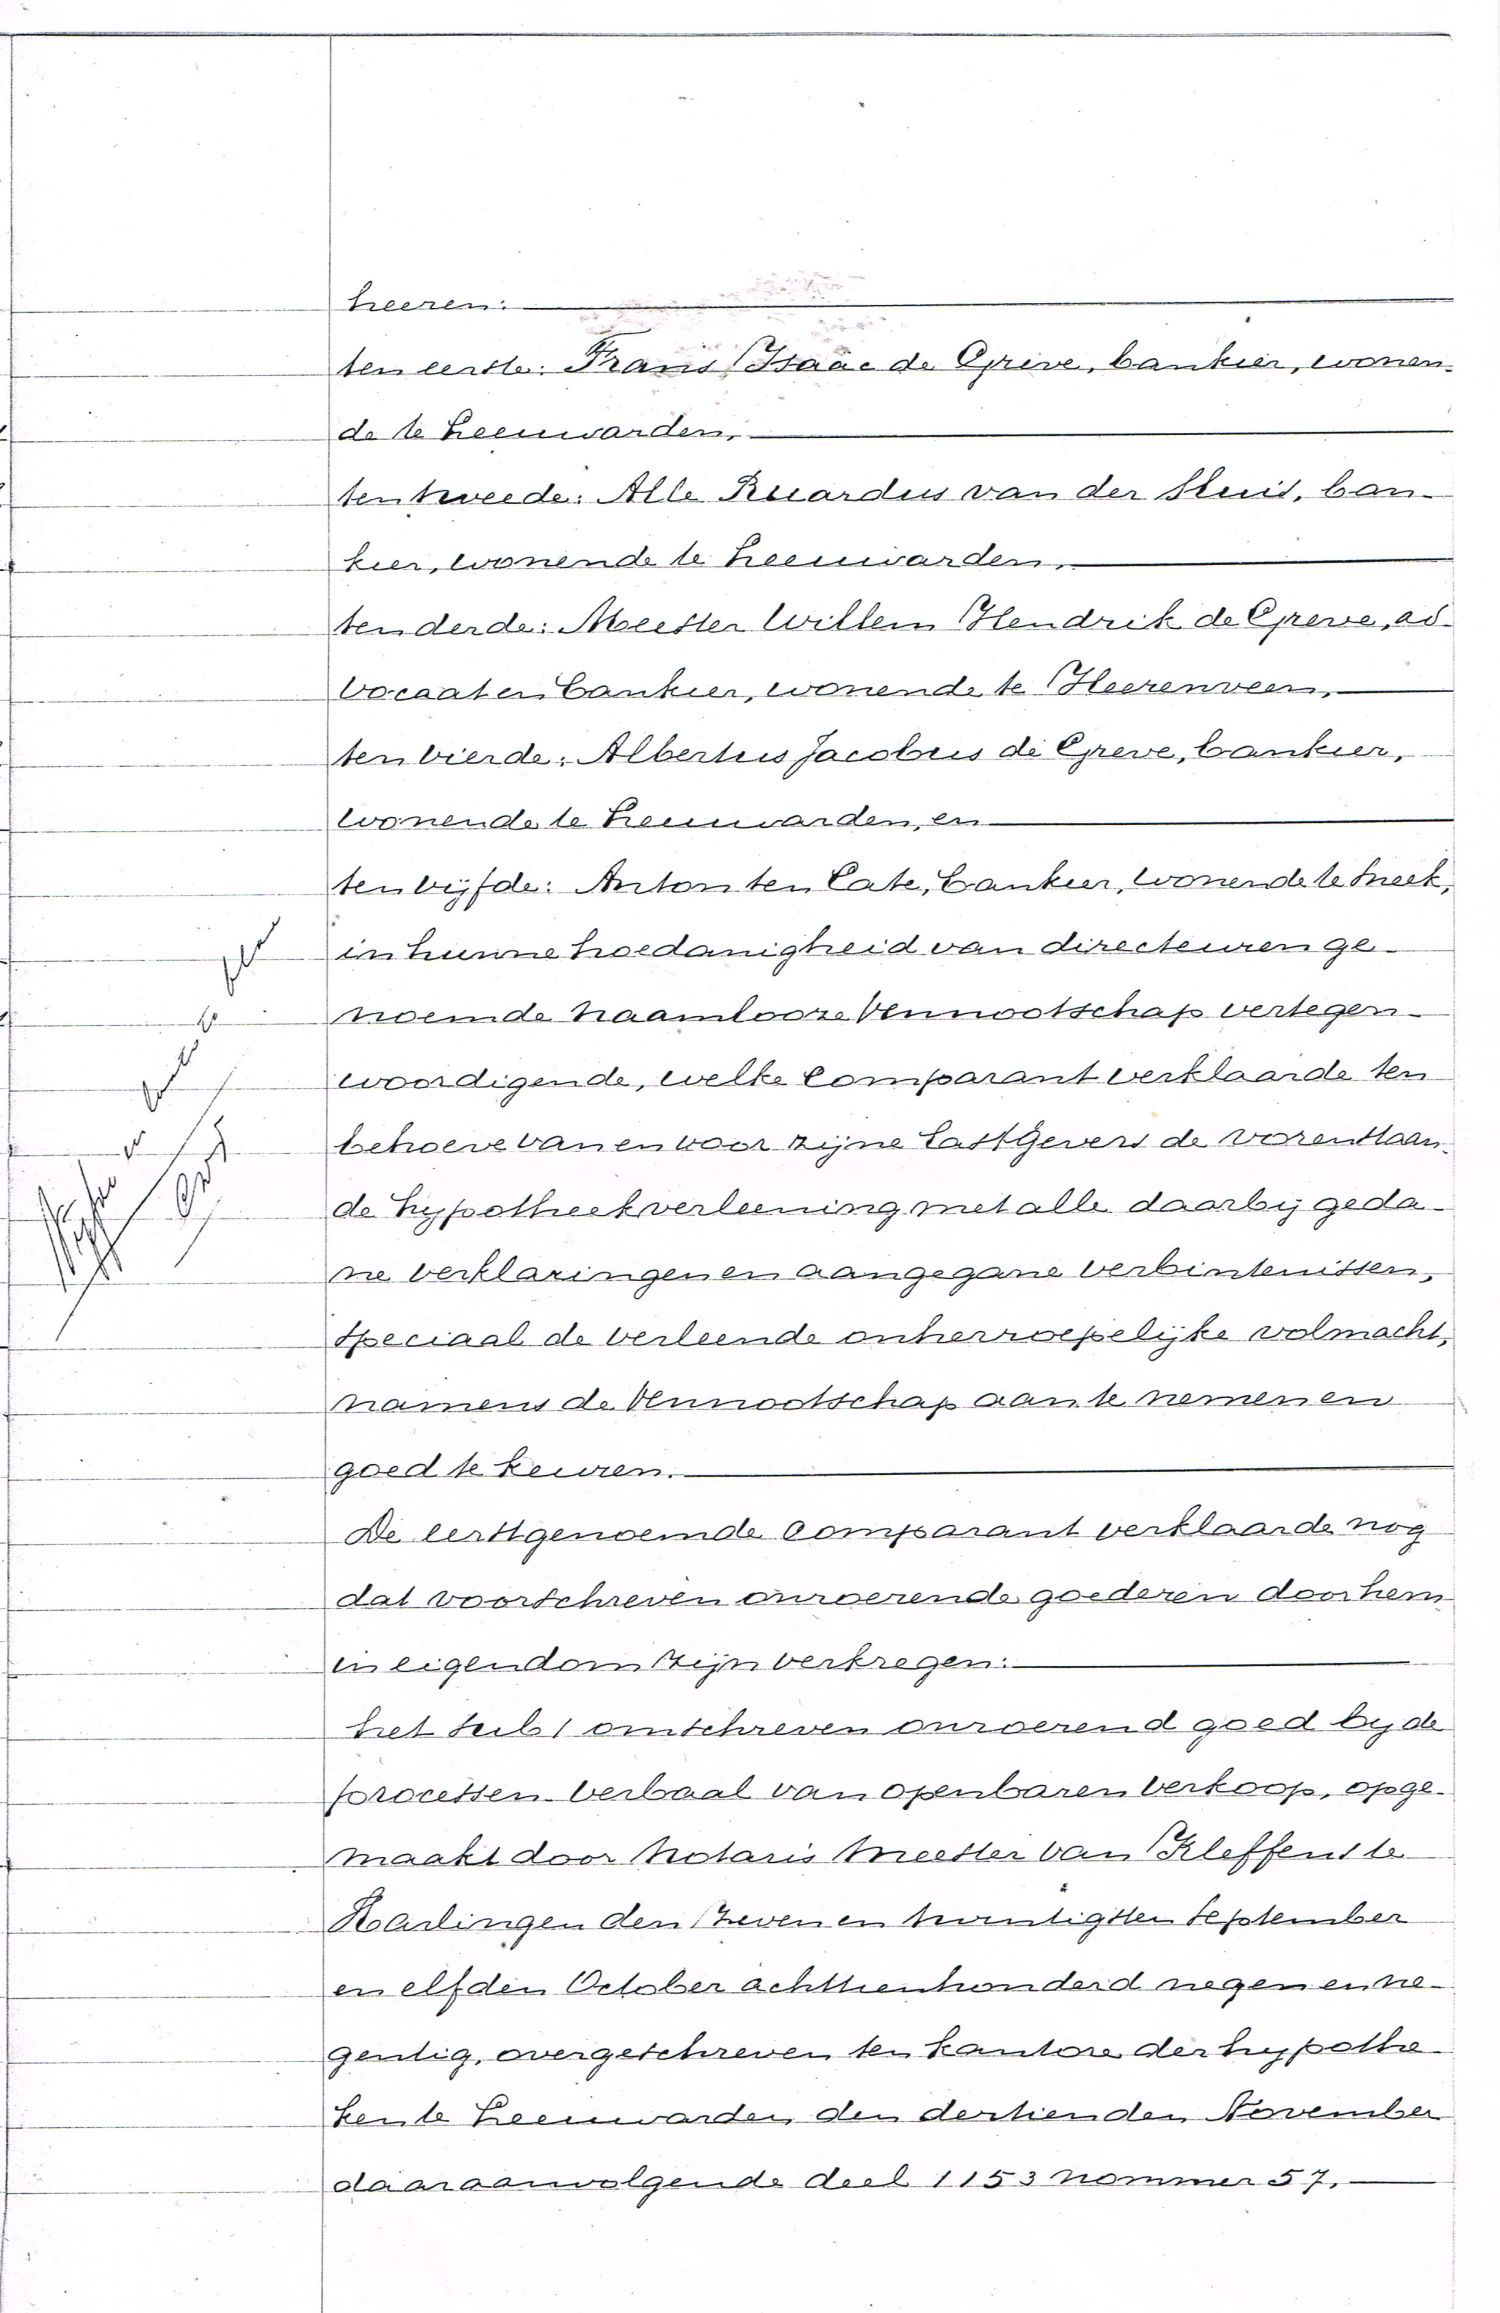 heeren:
ten eerste: Frans Isaäc de Greve, bankier, wonen-
de te Leeuwarden,
ten tweede: Alle Ruardus van der Sluis, ban-
kier, wonende te Leeuwarden,
ten derde: Meester Willem Hendrik de Greve, ad-
vocaat en bankier, wonende te Heerenveen,
ten vierde: Albertus Jacobus de Greve, bankier,
wonende te Leeuwarden, en
ten vijfde: Anton ten Cate, bankier, wonende te Sneek,
in hunne hoedanigheid van directeuren ge-
noemde naamlooze Vennootschap vertegen-
woordigende, welke Comparant verklaarde ten
behoeve van en voor zijne Lastgevers de vorenstaan-
de hypotheekverleening met alle daarbij geda-
ne verklaringen en aangegane verbintenissen,
speciaal de verleende onherroepelijke volmacht,
namens de Vennootschap aan te nemen en
goed te keuren.
De eerstgenoemde Comparant verklaarde nog
dat voorschreven onroerende goederen door hem
in eigendom zijn verkregen:
het sub 1 omschreven onroerend goed bij de
processen-verbaal van openbaren verkoop, opge-
maakt door notaris Meester van Kleffens te
Harlingen den zeven en twintigsten September
en elfden October achttienhonderd negen en ne-
gentig, overgeschreven ten kantore der hypothe-
ken te Leeuwarden den dertienden November
daaraanvolgende deel 1153 nommer 57.